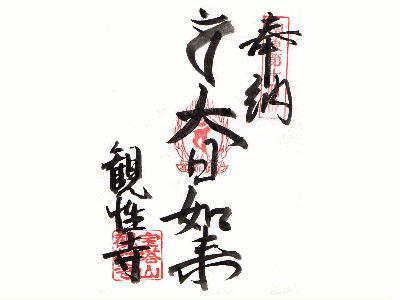 奉納
大日如来
観性寺
宝塔山